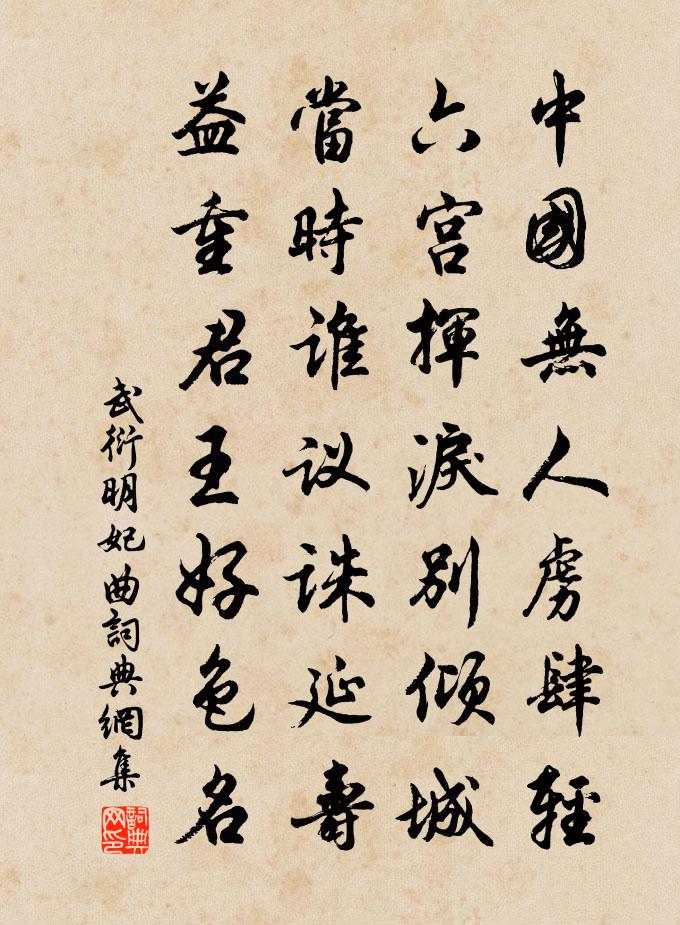 中國無人虜肆輕
六宮揮淚別傾城
當時誰议誅延壽
益重君王好色名
武衍明妃曲詞典網集
詞典网印